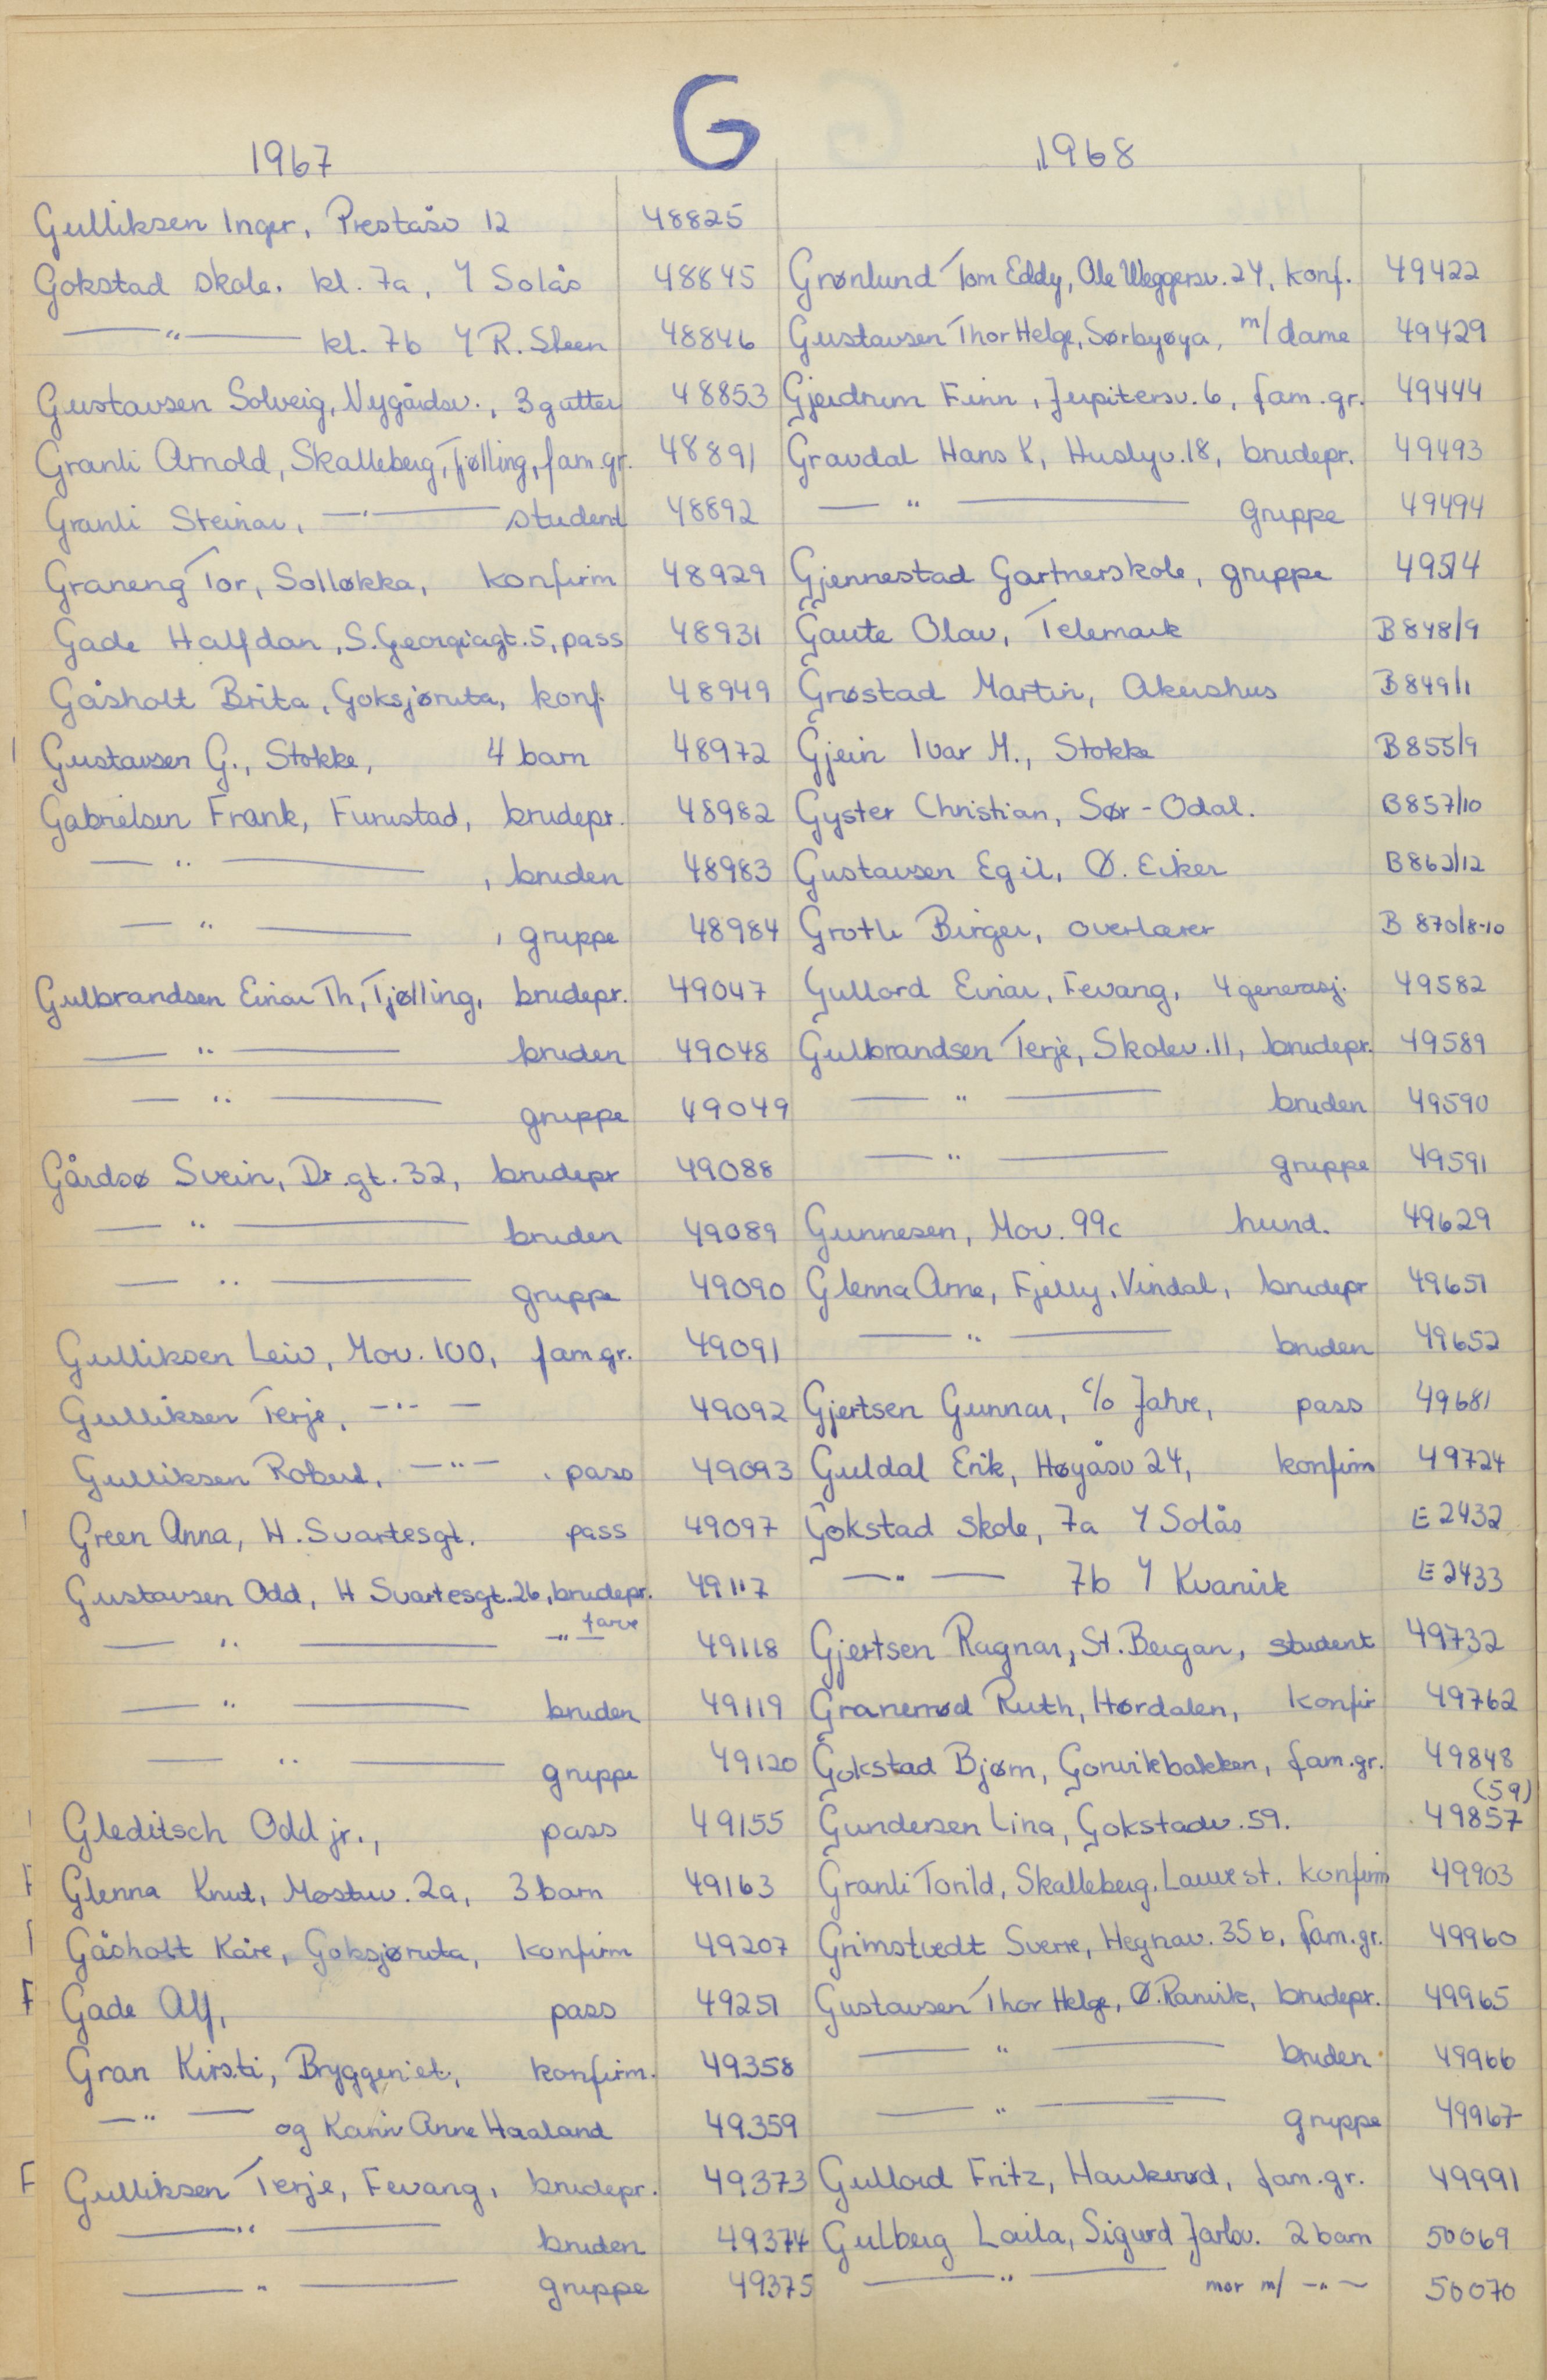 G
1967
Gulliksen Inger, Prestaåsv 12 48825
Gokstad skole. kl. 7a, Y Solås 48845
—"— kl. 7b Y R. Steen 48846
Gustavsen Solveig, Nygårdsv., 3 gutter 48853
Granli Arnold, Skalleberg, Tjølling, fam.gr. 48891
Granli Steinar, —"— student 48892
Graneng Tor, Solløkka, konfirm 48929
Gade Halfdan, S. Georgiagt. 5, pass 48931
Gåsholt Brita, Goksjøruta, konf. 48949
Gustavsen G., Stokke, 4 barn 48972
Gabrielsen Frank, Furustad, brudepr. 48982
—"—, bruden 48983
—"—, gruppe 48984
Gulbrandsen Einar Th, Tjølling, brudepr. 49047
—"— bruden 49048
—"— gruppe 49049
Gårdsø Svein, Dr.gt. 32, brudepr 49088
—"— bruden 49089
—"— gruppe 49090
Gulliksen Leiv, Mov. 100, fam gr. 49091
Gulliksen Terje, —"— 49092
Gulliksen Robert, —"—, pass 49093
Green Anna, H. Svartesgt. pass 49097
Gustavsen Odd, H Svartesgt. 26, brudepr. 49117
—"— —"— farve 49118
—"— bruden 49119
—"— gruppe 49120
Gleditsch Odd jr., pass 49155
Glenna Knut, Mostuv. 2a, 3 barn 49163
Gåsholt Kåre, Goksjøruta, konfirm 49207
Gade Alf, pass 49251
Gran Kirsti, Bryggeriet, konfirm. 49358
—"— og Karin Anne Haaland 49359
Gulliksen Terje, Fevang, brudepr. 49373
—"— bruden 49374
—"— gruppe 49375
1968
Grønlund Tom Eddy, Ole Weggersv. 24, konf. 49422
Gustavsen Thor Helge, Sørbyøya, m/dame 49429
Gjerdrum Finn, Jupitersv. 6, fam.gr. 49444
Gravdal Hans K, Huslyv. 18, brudepr. 49493
—"— gruppe 49494
Gjennestad Gartnerskole, gruppe 49514
Gaute Olav, Telemark B 848/9
Grøstad Martin, Akershus B 849/1
Gjein Ivar M., Stokke B 855/9
Gyster Christian, Sør-Odal. B 857/10
Gustavsen Egil, Ø. Eiker B 862/12
Groth Birger, overlærer B 870/8-10
Gullord Einar, Fevang, 4 generasj. 49582
Gulbrandsen Terje, Skolev. 11, brudepr. 49589
—"— bruden 49590
—"— gruppe 49591
Gunnesen, Mov. 99c hund. 49629
Glenna Arne, Fjelly, Vindal, brudepr 49651
—"— bruden 49652
Gjertsen Gunnar, c/o Jahre, pass 49681
Guldal Erik, Høyåsv 24, konfirm 49724
Gokstad skole, 7a Y Solås E 2432
—"— 7b Y Kvanvik E 2433
Gjertsen Ragnar, St. Bergan, student 49732
Granerød Ruth, Hørdalen, konfir 49762
Gokstad Bjørn, Gorvikbakken, fam.gr. 49848
(59)
Gundersen Lina, Gokstadv. 59. 49857
Granli Torild, Skalleberg, Lauvest. konfirm 49903
Grimstvedt Sverre, Hegnav. 35b, fam.gr. 49960
Gustavsen Thor Helge, Ø. Ranvik, brudepr. 49965
—"— bruden 49966
—"— gruppe 49967
Gullord Fritz, Haukerød, fam.gr. 49991
Gulberg Laila, Sigurd Jarlsv. 2 barn 50069
—"— mor m/ —"— 50070